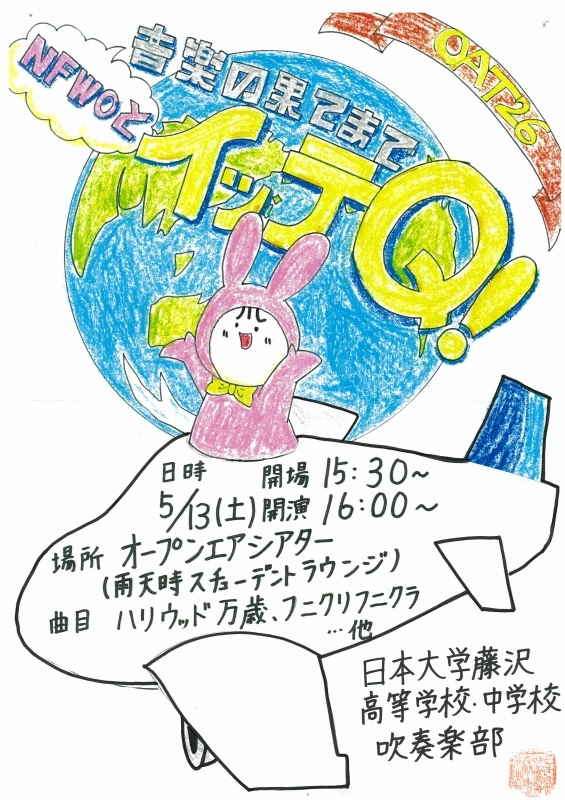 OAT26
NFWOと
音楽の果てまで
イッテQ!
日時 開場 15:30～
5/13(土) 開演 16:00～
場所 オープンエアシアター
(雨天時スチューデントラウンジ)
曲目 ハリウッド万歳、フニクリフニクラ
…他
日本大学藤沢
高等学校・中学校
吹奏楽部